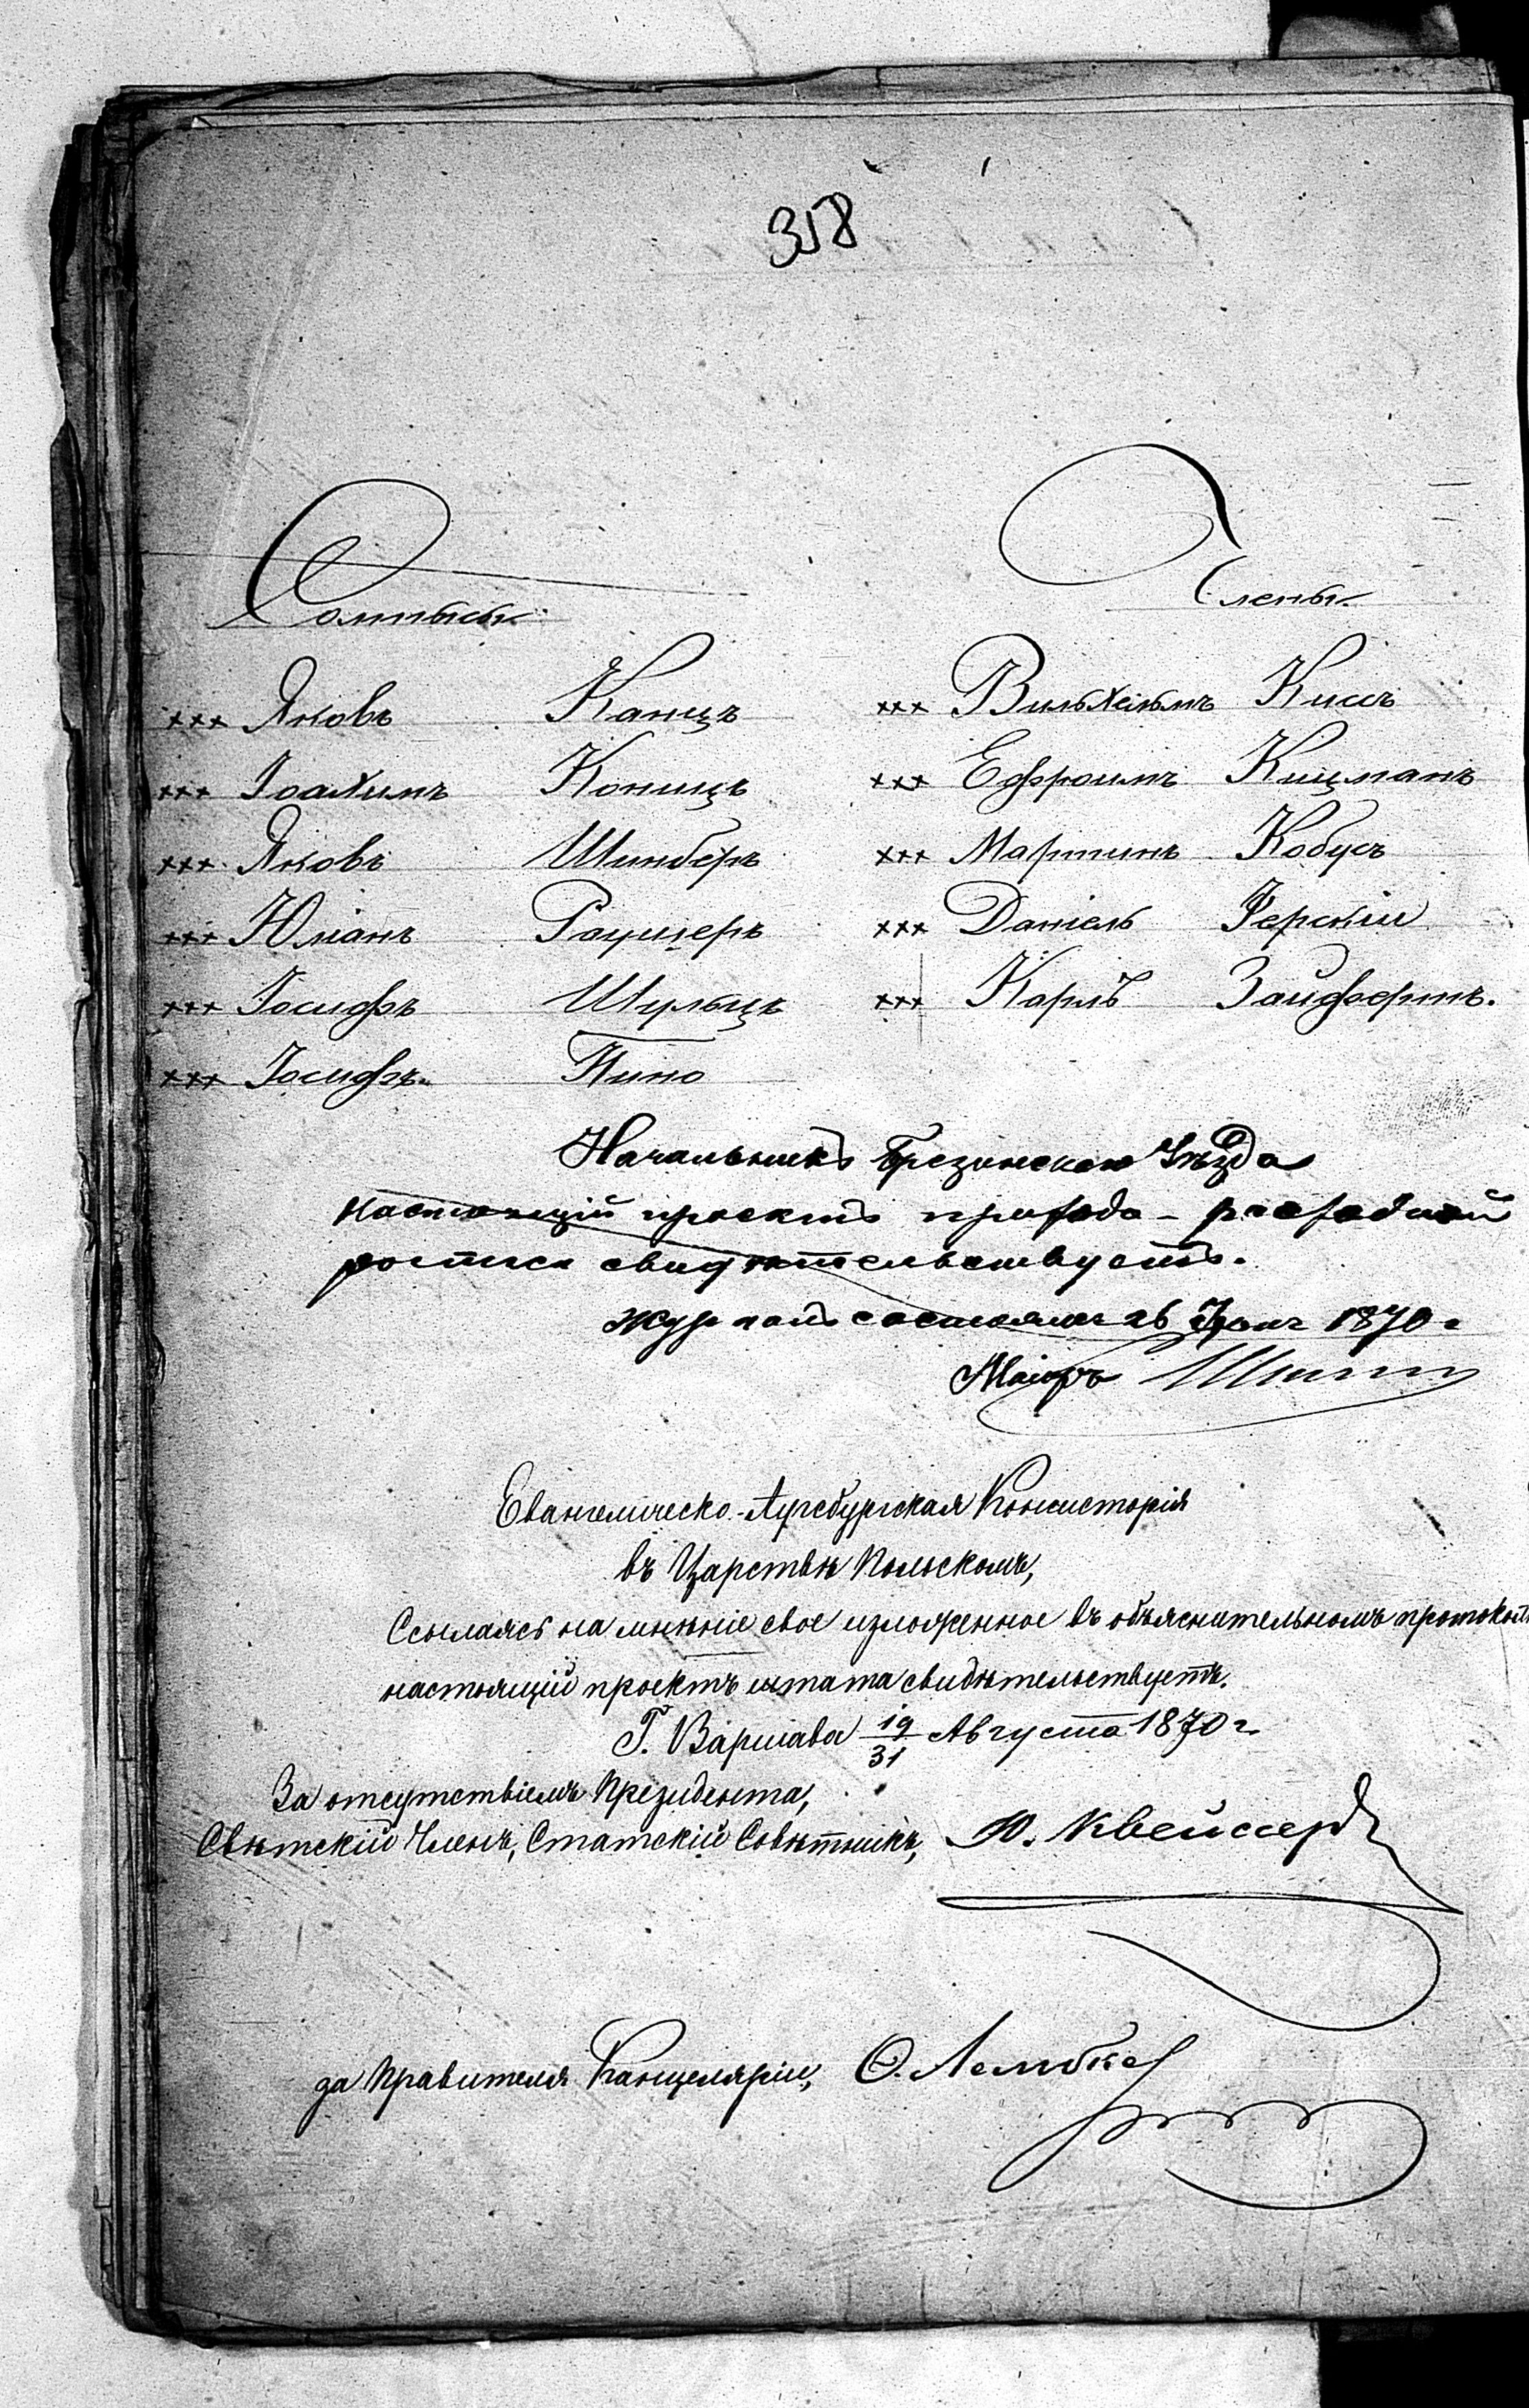 318
Солтысы Члены
xxx Яковъ Канцъ xxx Вильхельмъ Кишъ
xxx Іоахимъ Коницъ xxx Ефроимъ Кицманъ
xxx Яковъ Шинберъ xxx Мартинъ Кобусъ
xxx Юліанъ Раушеръ xxx Даніель Ферскій
xxx Іосифъ Шульцъ xxx Карлъ Зайфертъ.
xxx Іосифъ Пино
Начальникъ Брезинскаго Уѣзда
настоящій проектъ прихода - расходной
росписи свидѣтельствуетъ.
26 1870 г
Маіоръ
Евангелическо-Аугсбургская Консисторія
въ Царствѣ Польскомъ,
Ссылаясь на мнѣніе свое изложенное въ объяснительномъ протоколѣ
настоящій проектъ штата свидѣтельствуетъ.
Г. Варшава 19/31 Августа 1870 г
За отсутствіемъ Президента,
Свѣтскій Членъ, Статскій Совѣтникъ, Ю. Квейссеръ
за Правителя Канцеляріи, О. Лембке